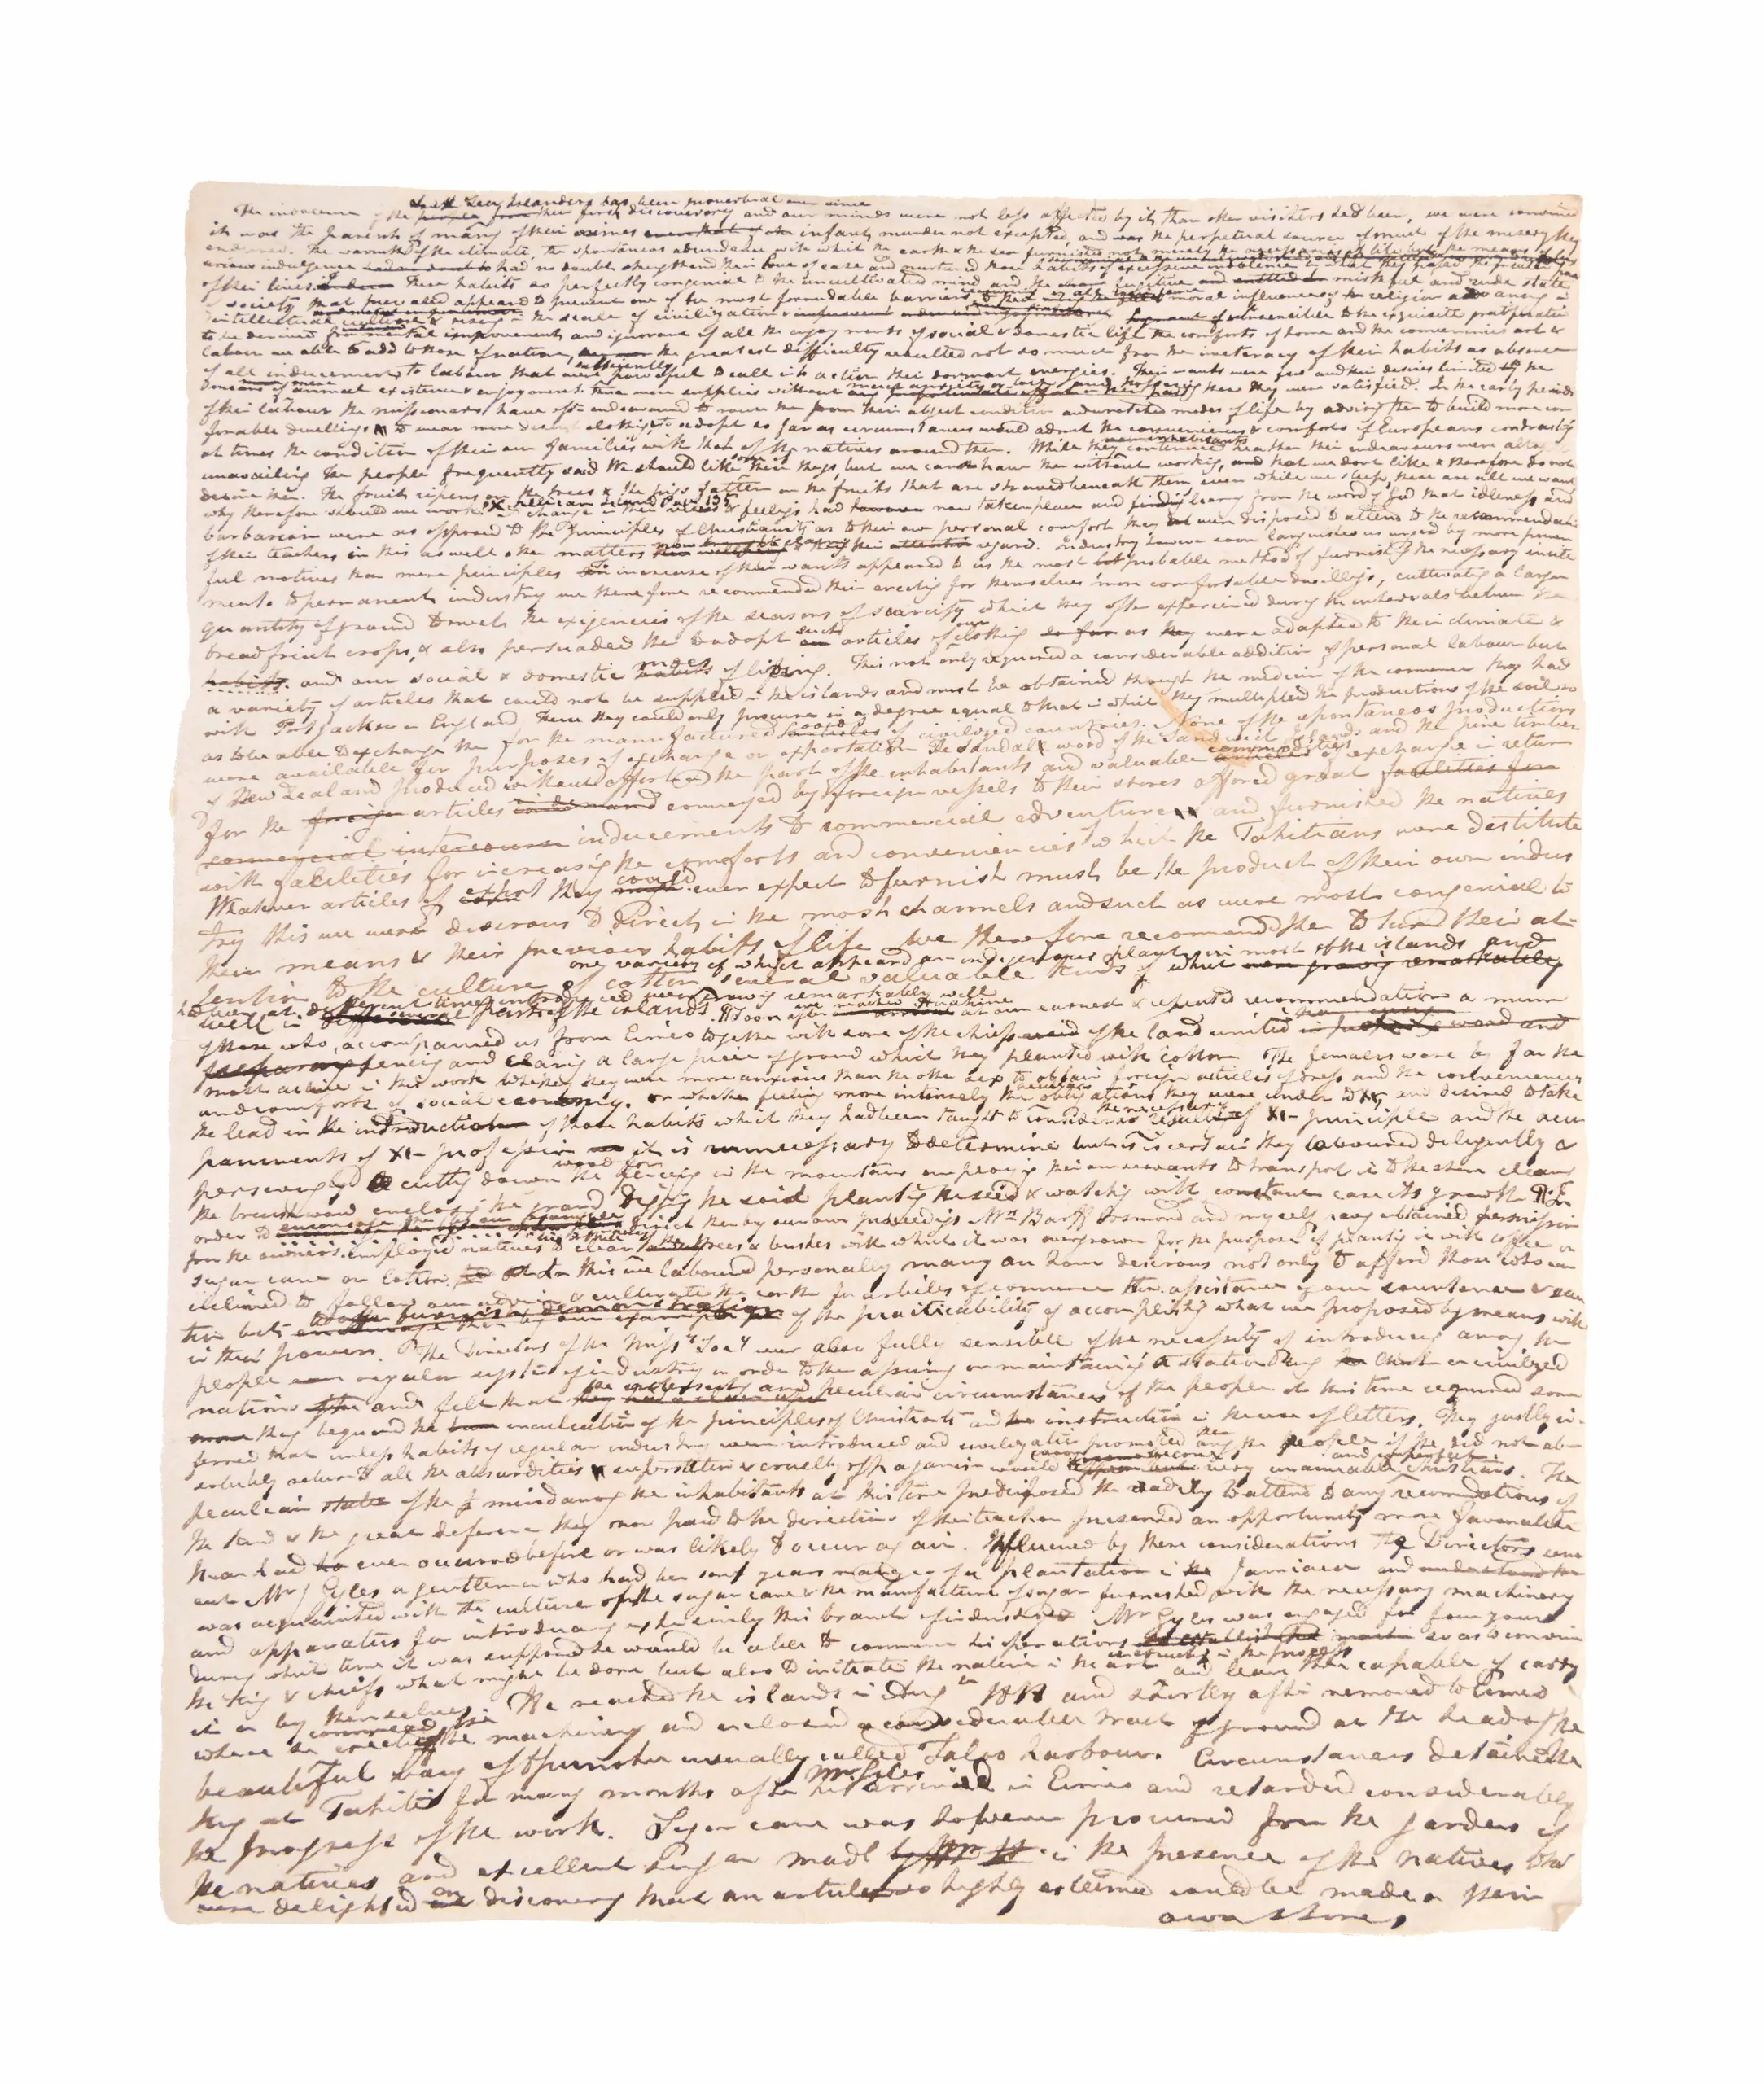 South Sea Islanders has been proverbial ever since
The indolence of the people from their first discovery and our minds were not less affected by it, than other visitors had been, we were convinced
it was the parent of many of their crimes even that of infant murder not excepted, and was the perpetual source of much of the misery they
endured. The warmth of the climate, the spontaneous abundance with which the earth & the sea furnished not merely the necessaries of life but the means of
indulgence had no doubt strengthend their love of ease and nurtured those habits of excessive indolence in that they passed the greater part
of their lives. These habits so perfectly congenial to the uncultivated mind and the fugitive and mirthful and rude state
of society that prevailed appeared to present one of the most formidable barriers to the moral influence of religion advancing in
intellectual culture & rising in the scale of civilization insensible to the exquisite gratification
to be derived from mental improvement, and ignorant of all the enjoyments of social & domestic life the comforts of home and the conveniencies art &
labour are able to add to those of nature, the greatest difficulty resulted not so much from the inveteracy of their habits as absence
of all inducements to labour that were sufficiently powerful to call into action their dormant energies. Their wants were few and their desires limited by the
means of mere animal existence & enjoyment. these were supplied without much anxiety or and possessing these they were satisfied. In the early periods
of their labour the missionaries have often endeavoured to rouse the from their abject condition and wretched modes of life by advising them to build more com
fortable dwellings to wear more decent clothing, & to adopt as far as circumstances would admit the conveniences & comforts of Europeans contrasting
at times the condition of their own families with that of the natives around them. While the inhabitants continued heathen their endeavours were altog
unavailing The people frequently said We should like some of these things, but we cannot have them without working, and that we dont like & therefore do not
desire them. The fruits ripens on the trees & the pigs fatten on the fruits that are strewed beneath them even while we sleep, these are all we want
why therefore should we work. X Pellican island Page 135 a change in their & feelings had however now taken place and finding learning from the word of God that idleness and
barbarism were as opposed to the principles of Christianity as to their own personal comfort they were disposed to attend to the recommendati
of their teachers in this as well other matters their attention regard. Industry however soon languishes unless urged by more power
ful motives than mere principles an increase of their wants appeared to us the most probable method of furnishing the necessary incite
ments to permanent industry we therefore recommended their erecting for themselves more comfortable dwellings, cultivating a larger
quantity of ground to meet the exigencies of the seasons of scarcity which they often experienced during the intervals between the
breadfruit crops, & also persuaded the to adopt such articles of our clothing as they were adapted to their climate &
habits. and our social & domestic modes habits of living. This not only required a considerable addition of personal labour but
a variety of articles that could not be supplied in the islands and must be obtained through the medium of the commerce they had
with Port Jackson or England These they could only procure in a degree equal to that in which they multiplied the productions of the soil so
as to be able to exchange the for the manufactured goods of civilized countries. None of the spontaneous productions
were available for purposes of exchange or exportation The Sandal wood of the Sandwich Islands and the pine timber
of New Zealand produced without effort on the part of the inhabitants and valuable commodities articles of exchange in return
for the foreign articles conveyed by foreign vessels to their stores offored great facilities for
commercial intercourse inducements to commercial adventure and furnished the natives
with facilities for increasing the comforts and conveniencies which the Tahitians were destitute
Whatever articles of export they could might ever expect to furnish must be the product of their own indus
try this we were desirous to direct in the most channels and such as were most congenial to
their means & their previous habits of life We therefore recomand the to turn their at-
one variety of which appeard an indigenous plant in most of the islands and
tention to the culture of cotton several valuable kinds of which were growing remarkably
been at different times introduced were growing remarkably well
well in different several parts of the islands. Soon after we reached Huahine at our earnest & repeated recommendation a number
of those who accompanied us from Eimeo together with some of the chiefs of the land united in wood and
preparing fencing and clearing a large piece of ground which they planted with cotton The females were by far the
most active in this work Whether they were more anxious than the other sex to obtain foreign articles of dress and the conveniences
and comforts of social economy. or whether feeling more intensely the obligations they were under to and desired to take
the lead in the introduction of those habits which they had been taught to consider as the necessary results of Xn principle and the accom
paniments of Xn profession it is unnecessary to determine but it is certain they laboured diligently &
perseveringly cutting down the wood for fencing in the mountains employing their own servants to transport it to the shore clearing
the brushwood enclosing the ground Digging the soil planting the seed & watching with constant care its growth In
order to encourage the by our example direct them by our own proceedings Mr Barff Bosmond and myself having obtained permission
from the owners employed natives to clear the trees & bushes with which it was overgrown for the purpose of planting it with coffee or
sugar cane or Cotton. In this we laboured personally many an hour desirous not only to afford those who were
inclined to follow our advice & cultivate the earth for articles of commerce the assistance of our countenance & exer
tion but to furnish a demonstration encourage them by our example of the practicability of accomplishing what we proposed by means with
in their power. The Directors of the Missy Socy were also fully sensible of the necessity of introducing among the
people a regular system of industry in order to their or maintaining a station among the Christian or civilized
nations and felt that the peculiar circumstances of the people at this time required some
thing beyond the inculcation of the principles of Christianity and the instruction in the use of letters. They justly in-
ferred that unless habits of regular industry were introduced and civilization promoted among the people if they did not ab-
solutely return to all the absurdities superstition & cruelty of paganism would become very unamiable and imperfect Christians. The
peculiar state of the mind among the inhabitants at this time predisposed the readily to attend to any recomendations of
the kind & the great deference they now paid to the directions of their teachers presented an opportunity more favourable
than had ever occurred before or was likely to occur again. Influenced by these considerations The Directors sent
out Mr J Gyles a gentleman who had been some years manager of a plantation in the Jamiaca and understood the
was acquainted with the culture of the sugar cane & the manufacture of sugar furnished with the necessary machinery
and apparatus for introducing this branch of industry. Mr Gyles was engaged for four years
during which time it was supposed he would be able to commence his operations so as to convince
the King & chiefs what might be done but also to initiate the natives in the art and leave them capable of carrying
it on by themselves He reached the islands in Augt 1818 and shortly after removed to Eimeo
where he commenced erecting the machinery and enclosed a considerable tract of ground at the head of the
beautiful bay of Opunohu usually called Taloo harbour. Circumstances detained the
King at Tahiti for many months after Mr Giles his arrival in Eimeo and retarded considerably
the progress of the work. Sugar cane was however procured from the gardens of
the natives and excellent sugar made by Mr G. in the presence of the natives who
were delighted on discovery that an article so highly esteemed could be made on their
own shores